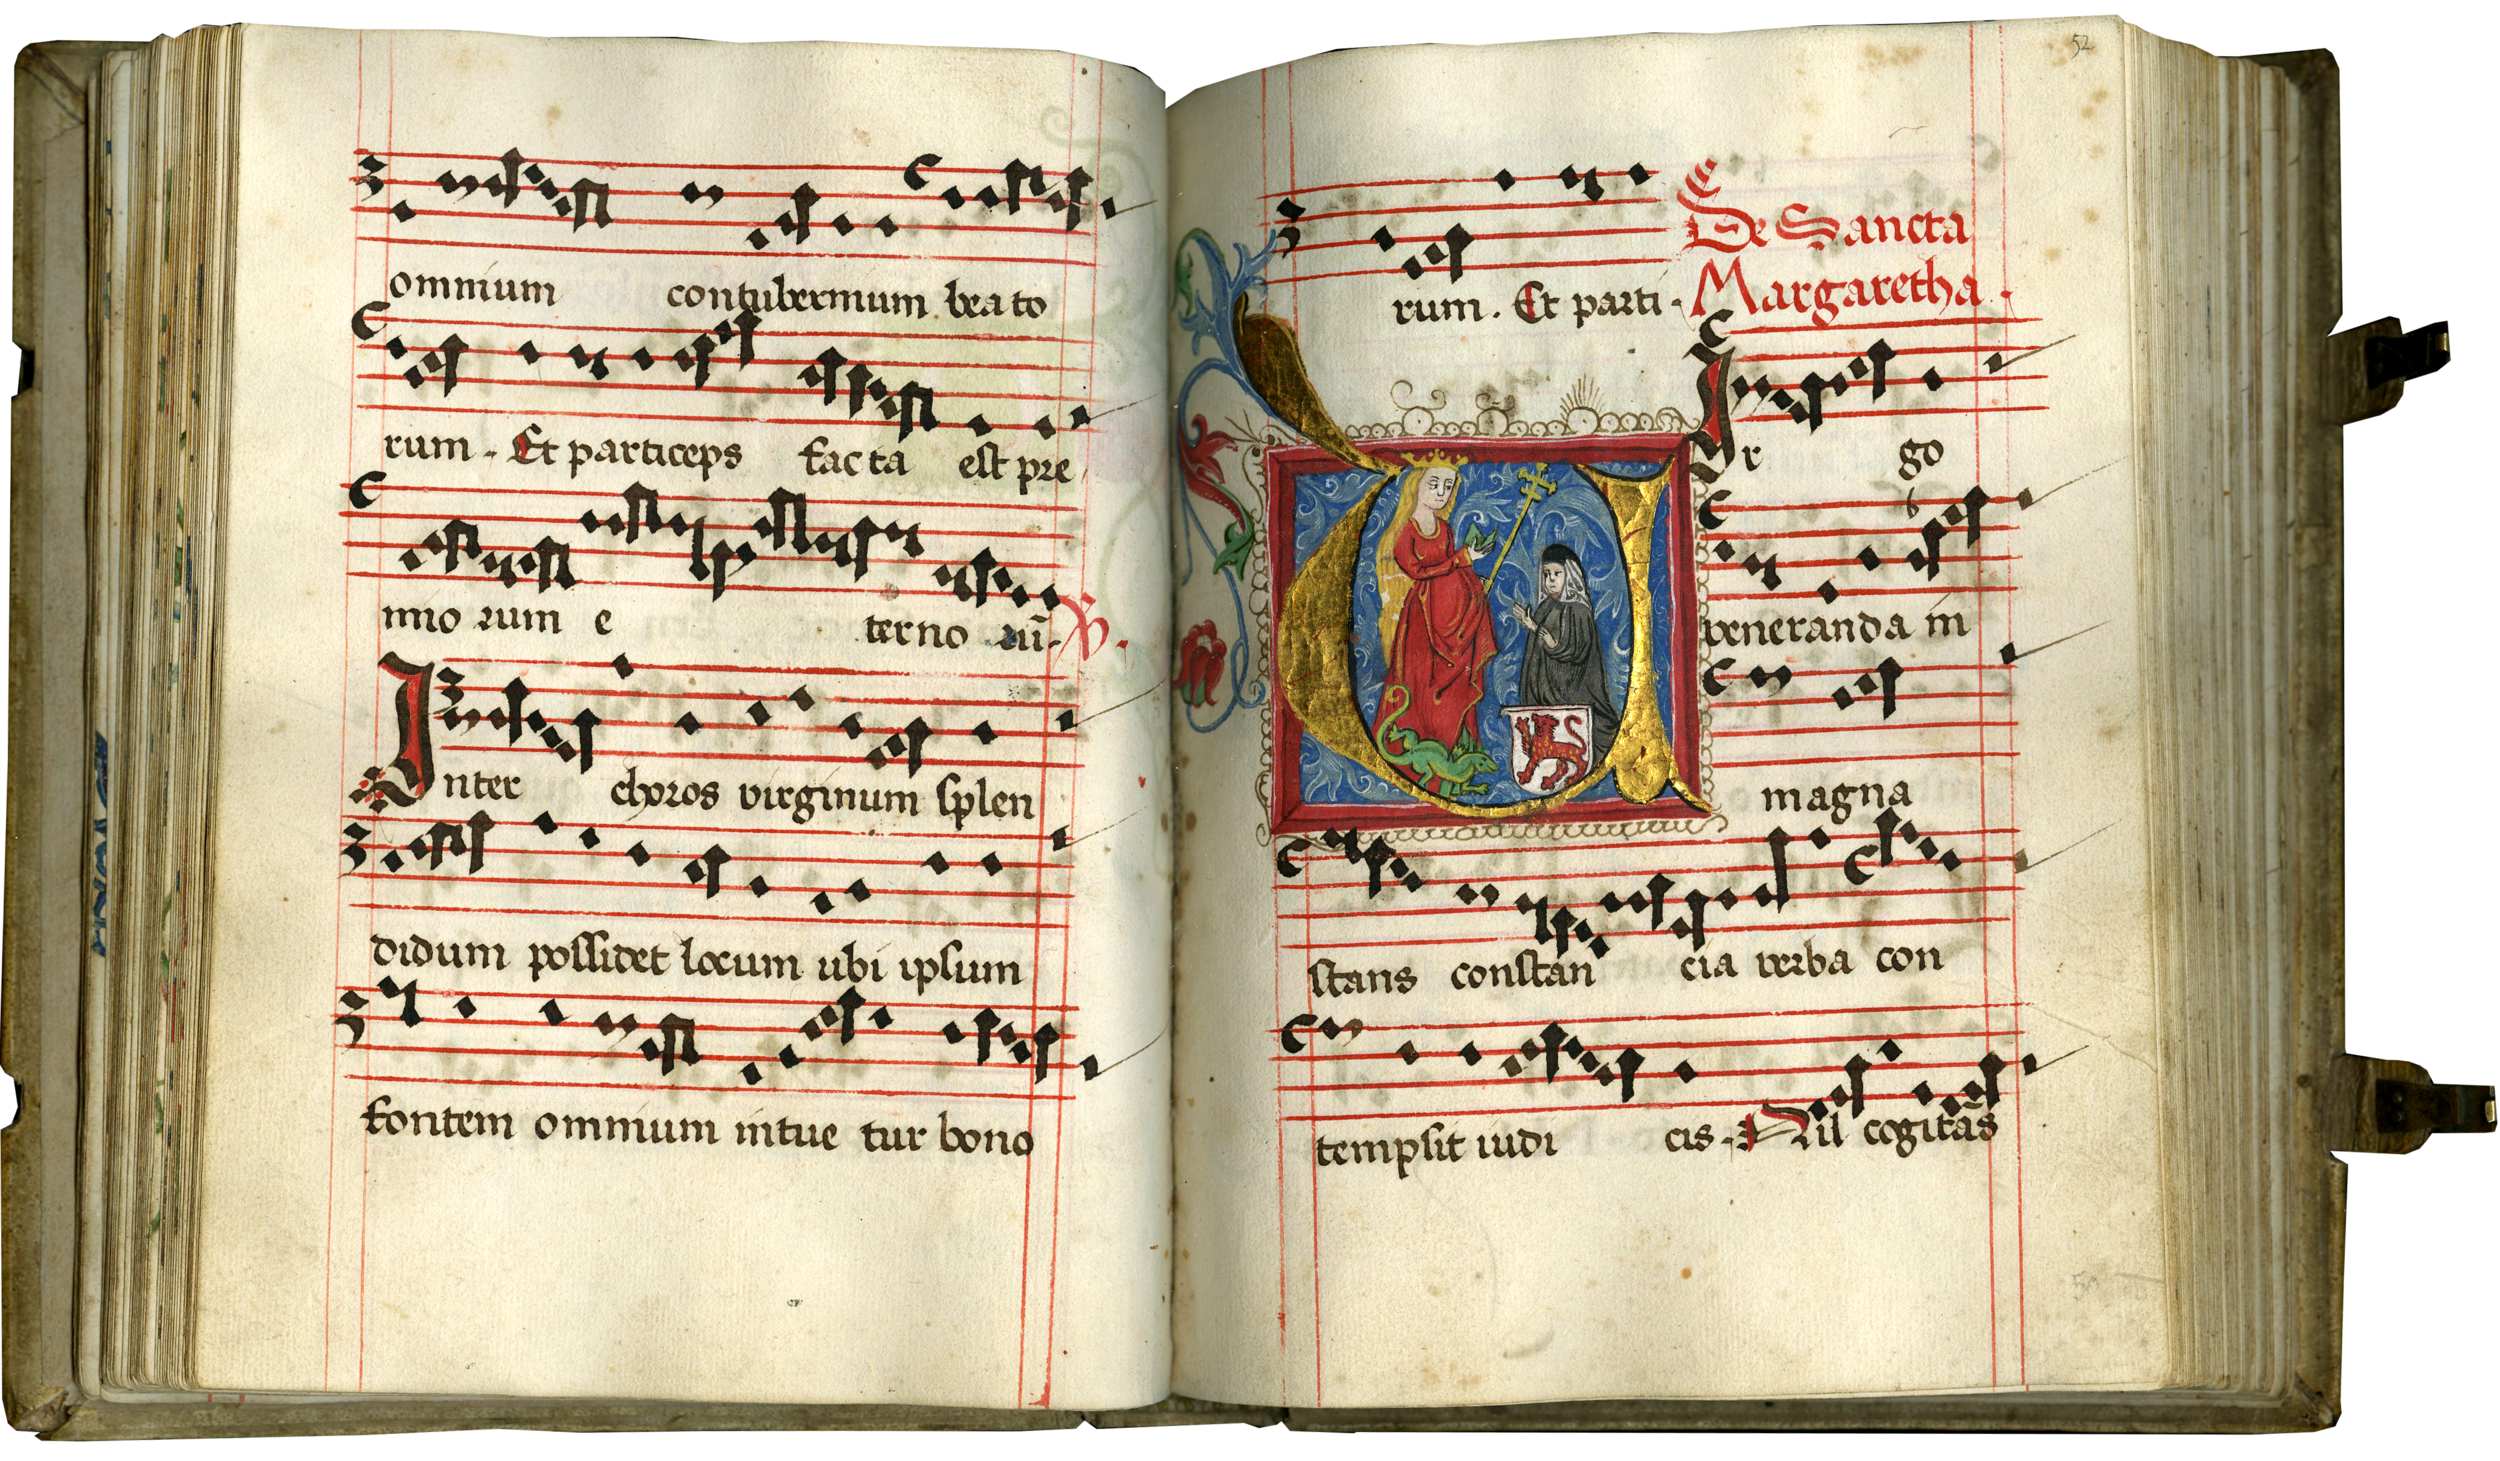 omnium contubernium beato
rum. Et particeps facta est pre
mio rum e terno rū. R.
Inter choros virginum splen
didum possidet locum ubi ipsum
fontem omnium intue tur bono
52
rum. Et parti. De Sancta
Margaretha.
Vir go
veneranda in
magna
stans constan cia verba con
tempsit iudi cis. Nil cogitās